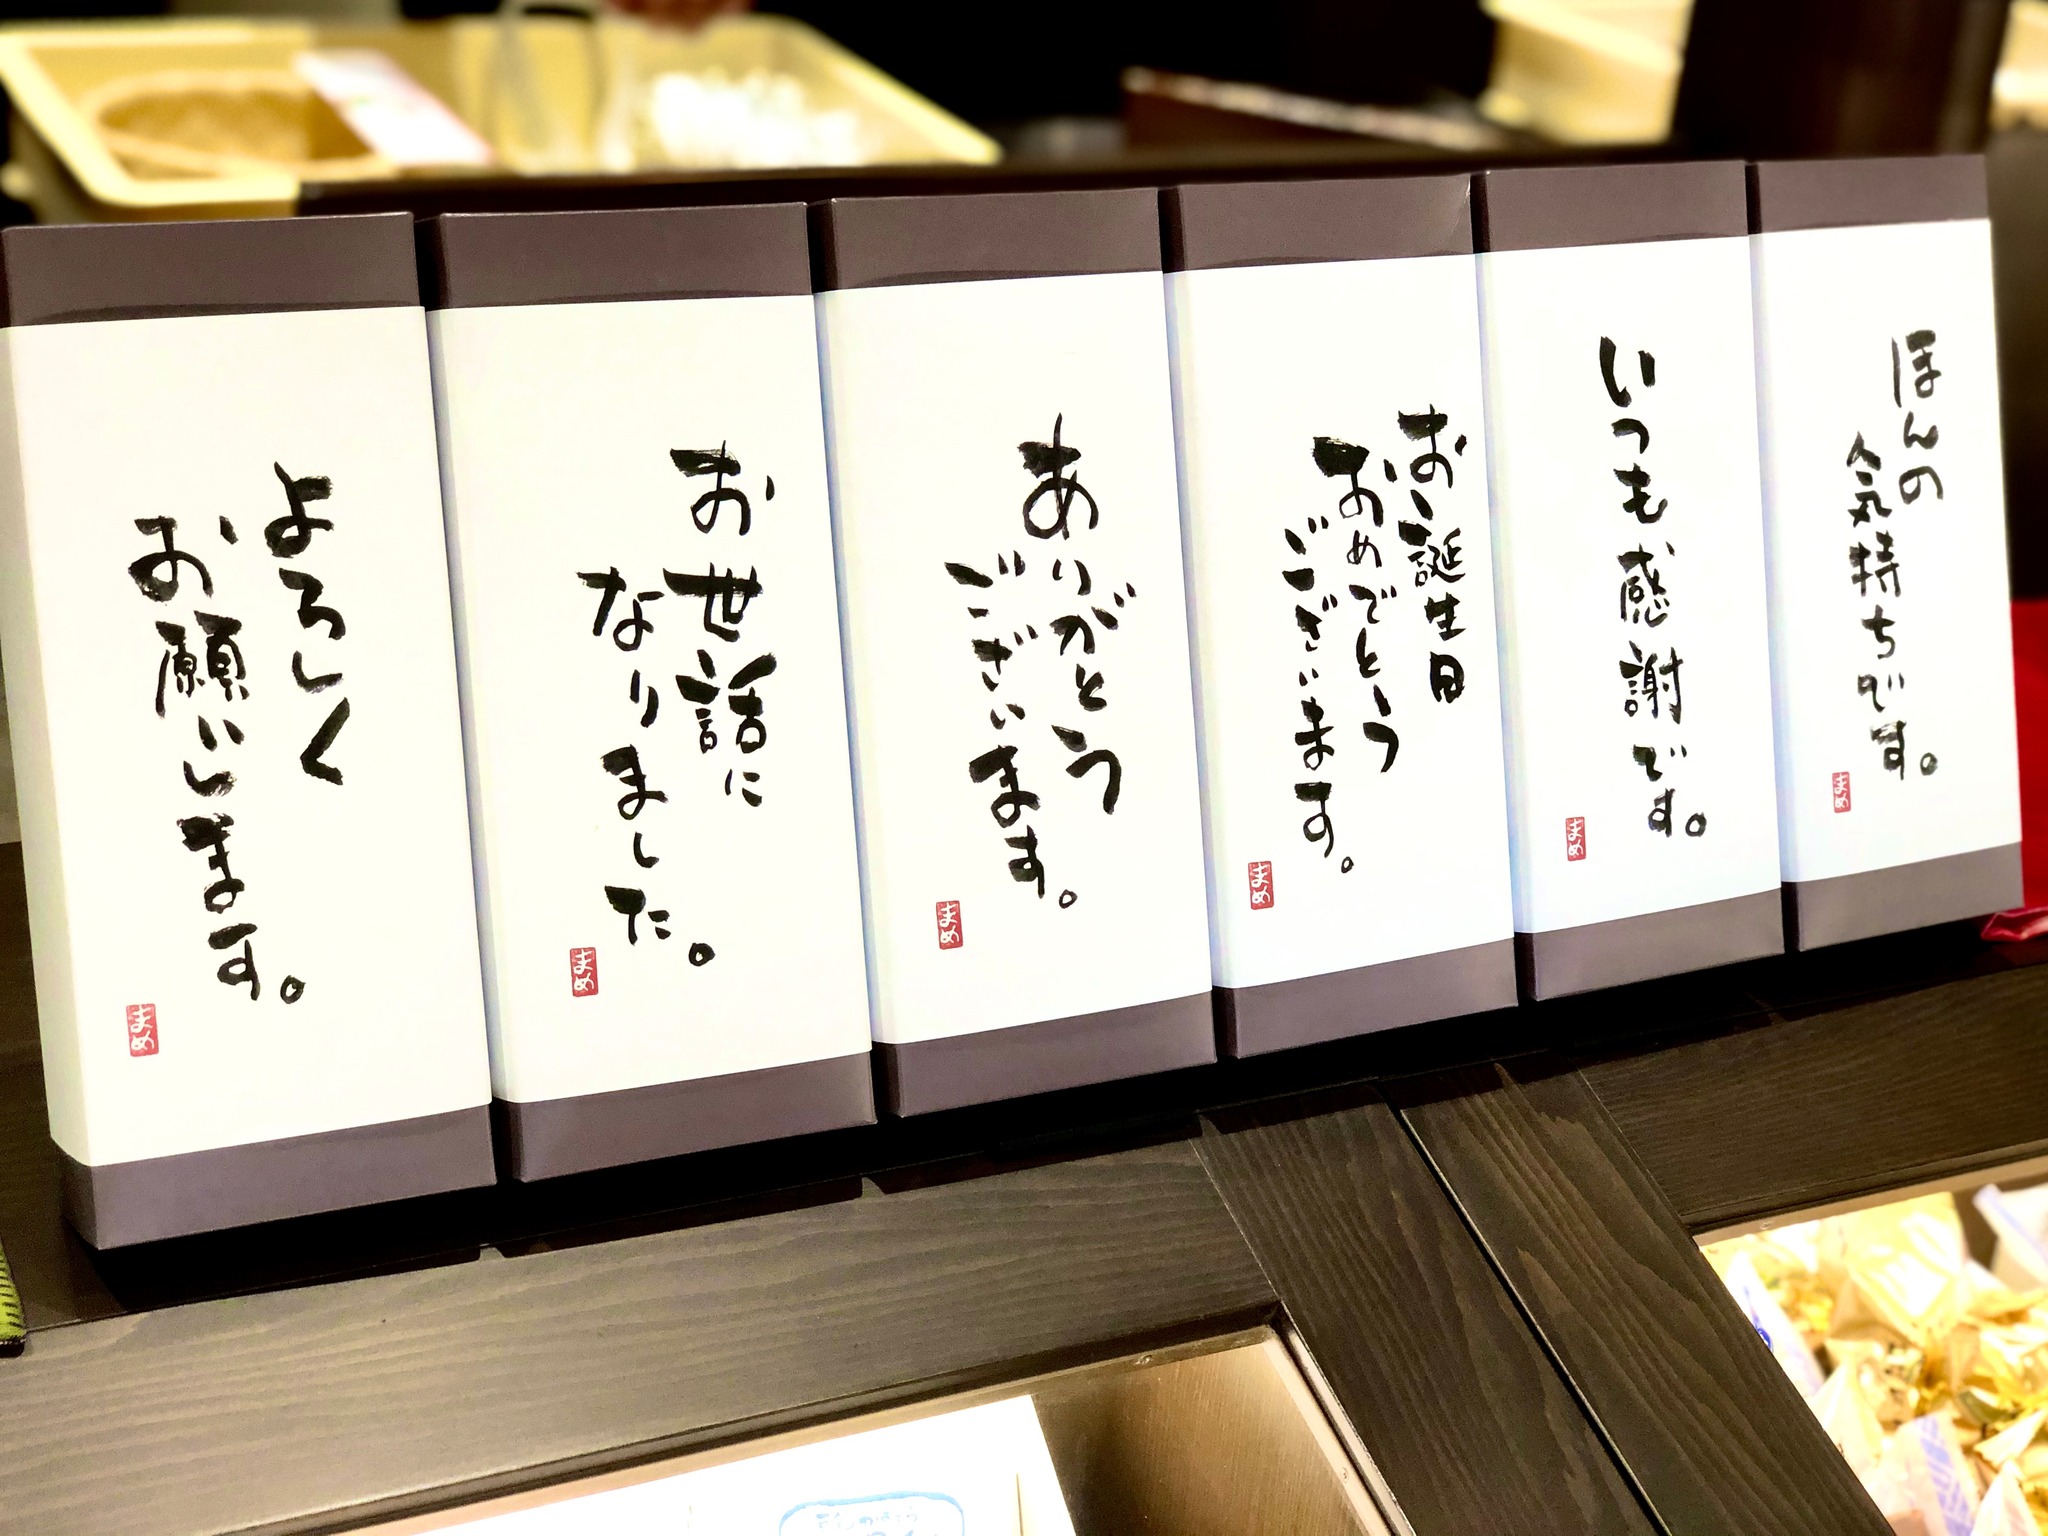 よろしく
お願いします。
まめ
お世話に
なりました。
まめ
ありがとう
ございます。
まめ
お誕生日
おめでとう
ございます。
まめ
いつも感謝です。
まめ
ほんの
気持ちです。
まめ